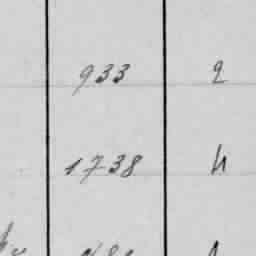 933 2
1738 4